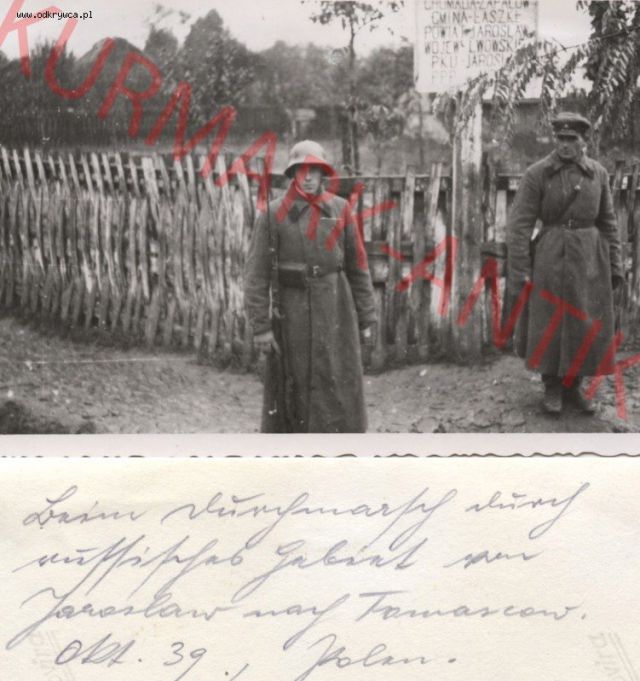 www.odkrywca.pl
GMINA-
POWIAT-JAROSŁAW
WOJEW-LWOWSKIE
PKU-JAROSŁ
KURMARK-ANTIK
Beim Durchmarsch durch
russisches Gebiet von
Jaroslaw nach Tomascow.
Okt. 39., Polen.